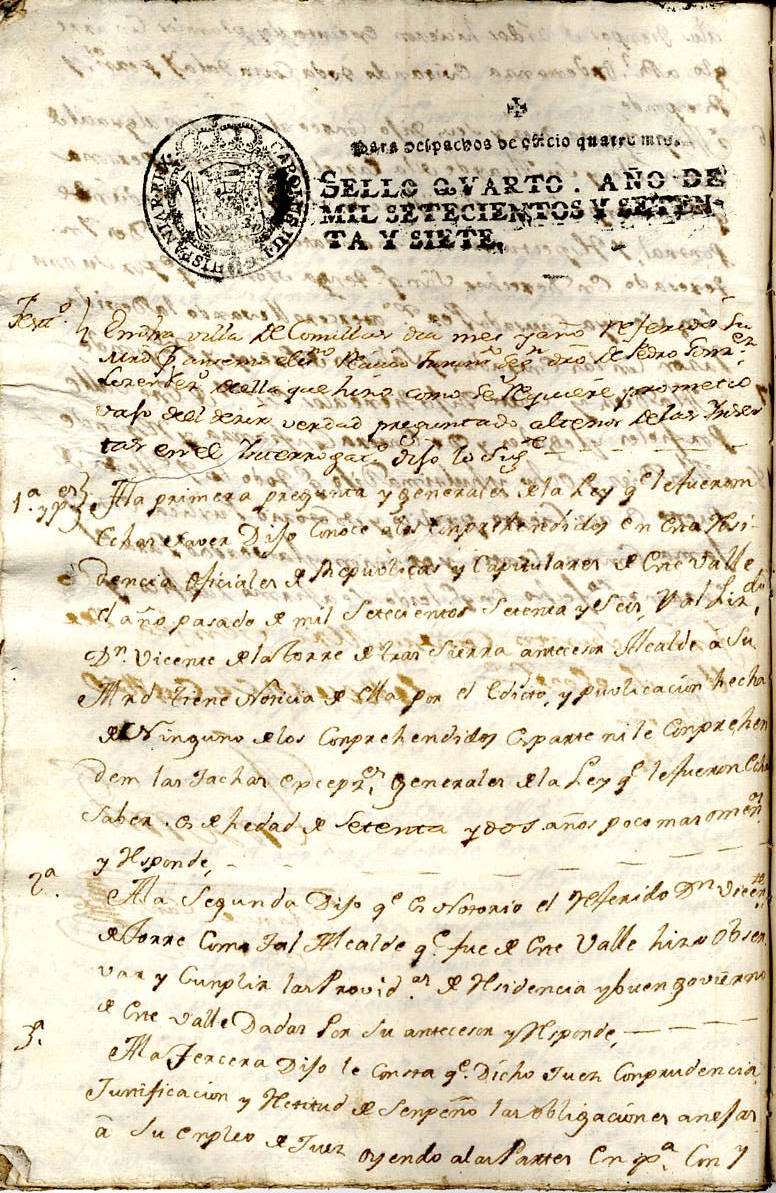 CAROLUS III D G HISPANIAR REX
Para despachos de oficio quatro mrs.
SELLO QVARTO. AÑO DE
MIL SETECIENTOS Y SETEN-
TA Y SIETE.
Testº.
En dha villa de Comillas dia mes y año referido Su
Mrd Pedro
de ella que hizo como se requiere prometio
vajo de el decir verdad preguntado al tenor de las Inser
tas en el Interrogatº. dijo lo Sigte
1ª. y
A la primera pregunta y generales de la Ley qe. le fueron
Echas saver Dijo Conoce a los Conprehendidos en esta Rsi-
dencia Oficiales de Republicas y Capitulares de Este Valle
el año pasado de mil Setecientos Setenta y Seis, y al Lizdo.
Dn. Vicente de la Torre de tras Sierra antecesor Alcalde a Su
Mrd tiene Noticia de ella por el Edicto, y publicacion hecha
de Ninguno de los Conprehendidos es parte ni le Conprehen
dem las tachas generales de la Ley qe. le fueron Echas
Saber. es de hedad de Setenta y dos años poco mas o menos
y Rsponde,
2ª.
A la Segunda Dijo qe. es Notorio el Referido Dn. Vicente
de Torre Como tal Alcalde qe. fue de Este Valle hizo Obser
var y Cunplir las Providas. de Rsidencia y buen govierno
de Este Valle Dadas por Su antecesor y Rsponde,
3.
A la Tercera Dijo le Consta qe. Dicho Juez Conprudencia
Justificacion y Retitud desenpeño las obligaciones anejas
a Su enpleo de Juez oyendo a las Partes En Con y